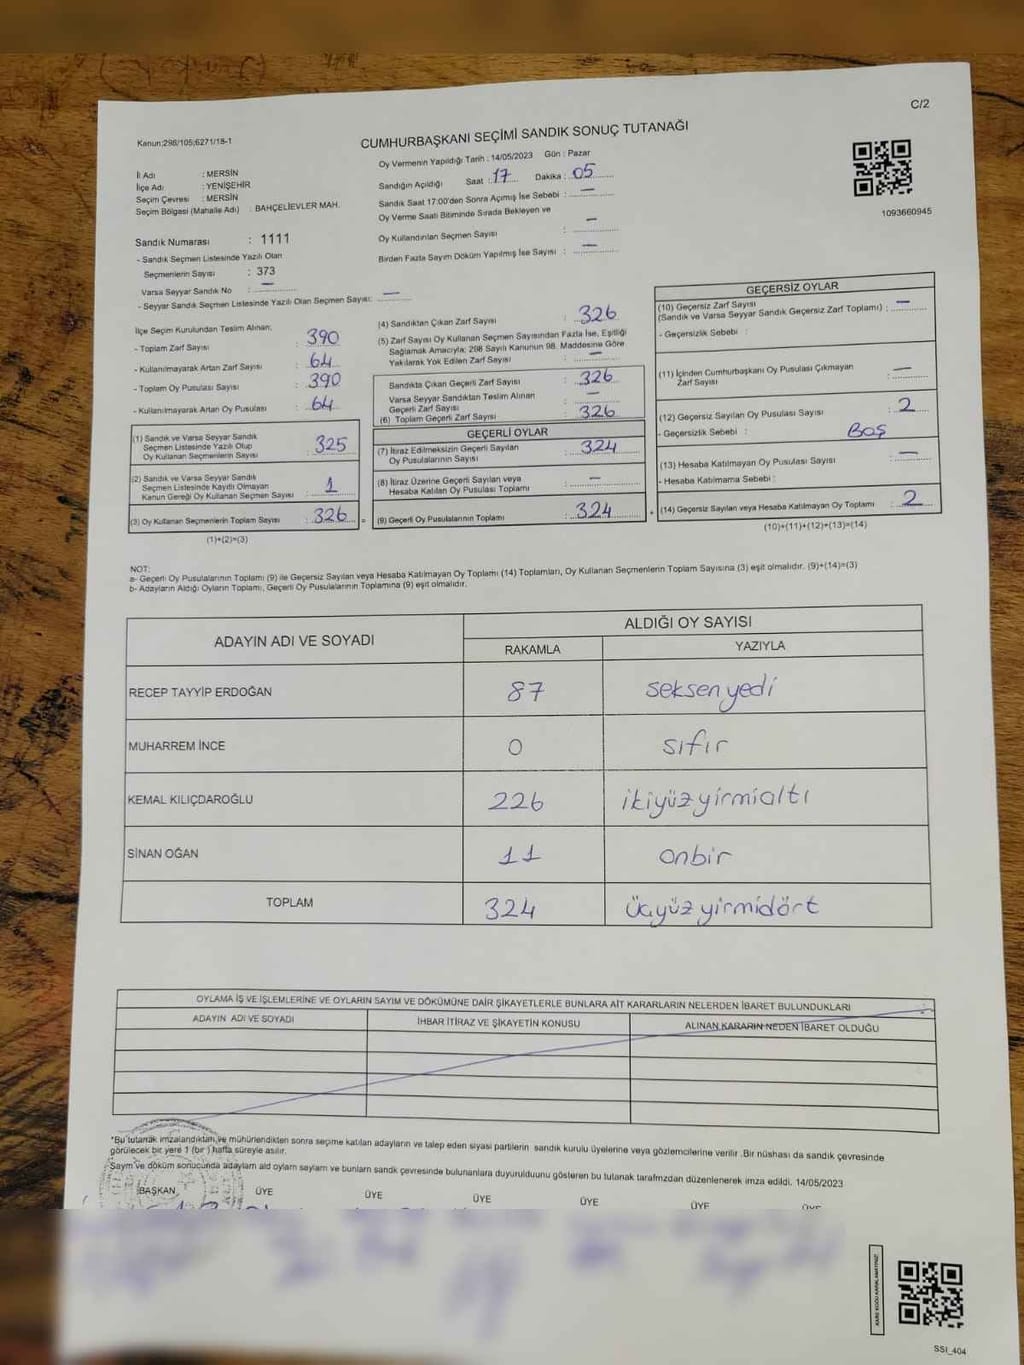 C/2
Kanun:298/105;6271/18-1
CUMHURBAŞKANI SEÇİMİ SANDIK SONUÇ TUTANAĞI
Oy Vermenin Yapıldığı Tarih : 14/05/2023 Gün : Pazar
İl Adı : MERSİN
İlçe Adı : YENİŞEHİR
Seçim Çevresi : MERSİN
Seçim Bölgesi (Mahalle Adı) : BAHÇELİEVLER MAH.
Sandığın Açıldığı Saat : 17 Dakika : 05
Sandık Saat 17:00'den Sonra Açımış İse Sebebi : —
Oy Verme Saati Bitiminde Sırada Bekleyen ve
Oy Kullandırılan Seçmen Sayısı : —
Birden Fazla Sayım Döküm Yapılmış İse Sayısı : —
1093660945
Sandık Numarası : 1111
- Sandık Seçmen Listesinde Yazılı Olan
Seçmenlerin Sayısı : 373
Varsa Seyyar Sandık No : —
- Seyyar Sandık Seçmen Listesinde Yazılı Olan Seçmen Sayısı: —
İlçe Seçim Kurulundan Teslim Alınan;
- Toplam Zarf Sayısı : 390
- Kullanılmayarak Artan Zarf Sayısı : 64
- Toplam Oy Pusulası Sayısı : 390
- Kullanılmayarak Artan Oy Pusulası : 64
(1) Sandık ve Varsa Seyyar Sandık
Seçmen Listesinde Yazılı Olup
Oy Kullanan Seçmenlerin Sayısı : 325
(2) Sandık ve Varsa Seyyar Sandık
Seçmen Listesinde Kayıtlı Olmayan
Kanun Gereği Oy Kullanan Seçmen Sayısı : 1
(3) Oy Kullanan Seçmenlerin Toplam Sayısı : 326 =
(1)+(2)=(3)
(4) Sandıktan Çıkan Zarf Sayısı : 326
(5) Zarf Sayısı Oy Kullanan Seçmen Sayısından Fazla İse, Eşitliği
Sağlamak Amacıyla; 298 Sayılı Kanunun 98. Maddesine Göre
Yakılarak Yok Edilen Zarf Sayısı : —
Sandıkta Çıkan Geçerli Zarf Sayısı : 326
Varsa Seyyar Sandıktan Teslim Alınan
Geçerli Zarf Sayısı : —
(6) Toplam Geçerli Zarf Sayısı : 326
GEÇERLİ OYLAR
(7) İtiraz Edilmeksizin Geçerli Sayılan
Oy Pusulalarının Sayısı : 324
(8) İtiraz Üzerine Geçerli Sayılan veya
Hesaba Katılan Oy Pusulası Toplamı : —
(9) Geçerli Oy Pusulalarının Toplamı : 324 +
GEÇERSİZ OYLAR
(10) Geçersiz Zarf Sayısı
(Sandık ve Varsa Seyyar Sandık Geçersiz Zarf Toplamı) : —
- Geçersizlik Sebebi :
(11) İçinden Cumhurbaşkanı Oy Pusulası Çıkmayan
Zarf Sayısı : —
(12) Geçersiz Sayılan Oy Pusulası Sayısı : 2
- Geçersizlik Sebebi : Boş
(13) Hesaba Katılmayan Oy Pusulası Sayısı : —
- Hesaba Katılmama Sebebi :
(14) Geçersiz Sayılan veya Hesaba Katılmayan Oy Toplamı : 2
(10)+(11)+(12)+(13)=(14)
NOT:
a- Geçerli Oy Pusulalarının Toplamı (9) ile Geçersiz Sayılan veya Hesaba Katılmayan Oy Toplamı (14) Toplamları, Oy Kullanan Seçmenlerin Toplam Sayısına (3) eşit olmalıdır. (9)+(14)=(3)
b- Adayların Aldığı Oyların Toplamı, Geçerli Oy Pusulalarının Toplamına (9) eşit olmalıdır.
ADAYIN ADI VE SOYADI ALDIĞI OY SAYISI
RAKAMLA YAZIYLA
RECEP TAYYİP ERDOĞAN 87 seksenyedi
MUHARREM İNCE 0 sıfır
KEMAL KILIÇDAROĞLU 226 ikiyüzyirmialtı
SİNAN OĞAN 11 onbir
TOPLAM 324 üçyüzyirmidört
OYLAMA İŞ VE İŞLEMLERİNE VE OYLARIN SAYIM VE DÖKÜMÜNE DAİR ŞİKAYETLERLE BUNLARA AİT KARARLARIN NELERDEN İBARET BULUNDUKLARI
ADAYIN ADI VE SOYADI İHBAR İTİRAZ VE ŞİKAYETİN KONUSU ALINAN KARARIN NEDEN İBARET OLDUĞU
*Bu tutanak imzalandıktan ve mühürlendikten sonra seçime katılan adayların ve talep eden siyasi partilerin sandık kurulu üyelerine veya gözlemcilerine verilir .Bir nüshası da sandık çevresinde
görülecek bir yere 1 (bir ) hafta süreyle asılır.
Sayım ve döküm sonucunda adayların ald oyların sayları ve bunların sandk çevresinde bulunanlara duyurulduunu gösteren bu tutanak tarafmzdan düzenlenerek imza edildi. 14/05/2023
BAŞKAN ÜYE ÜYE ÜYE ÜYE ÜYE ÜYE
SSI_404